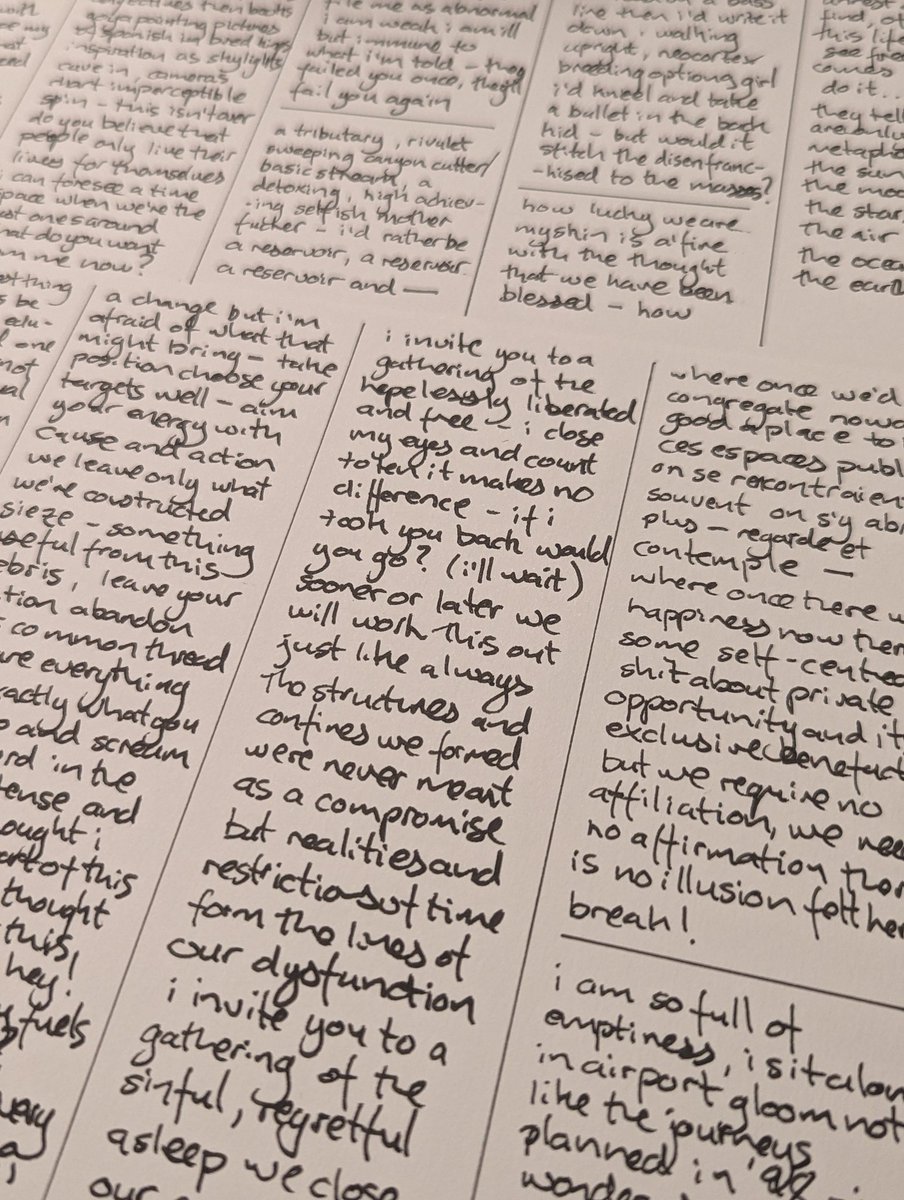 get a painting pictures
inspiration as skylights
cave in, cameras
start imperceptible
spin – this isn't over
do you believe that
people only live their
lives for themselves
i can foresee a time
space when we're the
ones around
what do you want
me now?
me as abnormal
i am weak i am ill
but immune to
what i'm told – they
failed you once, they'll
fail you again
a tributary, rivulet
sweeping canyon cutter/
basic stream, a
detoxing, high achiev-
-ing selfish mother
fucker – i'd rather be
a reservoir, a reservoir
a reservoir and —
line then i'd write it
down, walking
upright, neocortex
breeding options girl
i'd kneel and take
a bullet in the back
hid – but would it
stitch the disenfranc-
-hised to the masses?
how lucky we are
my skin is a'fire
with the thought
that we have been
blessed – how
find,
this
see
comes
do it..
they
are only
metaph
the sun
the moo
the star
the air
the ocea
the earth
thing
be
edu-
one
not
a change but i'm
afraid of what that
might bring – take
position choose your
targets well – aim
your energy with
cause and action
we leave only what
we're constructed
sieze – something
useful from this
debris, leave your
abandon
common thread
are everything
exactly what you
and scream
in the
tense and
thought i
part of this
thought
this,
hey!
fuels
i invite you to a
gathering of the
hopelessly liberated
and free – i close
my eyes and count
to ten it makes no
difference – if i
took you back would
you go? (i'll wait)
sooner or later we
will work this out
just like always
The structures and
confines we formed
were never meant
as a compromise
but realities and
restrictions of time
form the lines of
our dysfunction
i invite you to a
gathering of the
sinful, regretful
asleep we close
our
where once we'd
congregate now
good a place to
ces espaces publ
on se rencontraient
souvent on s'y
plus – regarde et
contemple —
where once there
happiness now ther
some self-cente
shit about private
opportunity and it
exclusive benefact
but we require no
affiliation, we nee
no affirmation ther
is no illusion felt her
break!
i am so full of
emptiness, i sit alon
in airport gloom not
like the journeys
planned in
wonder